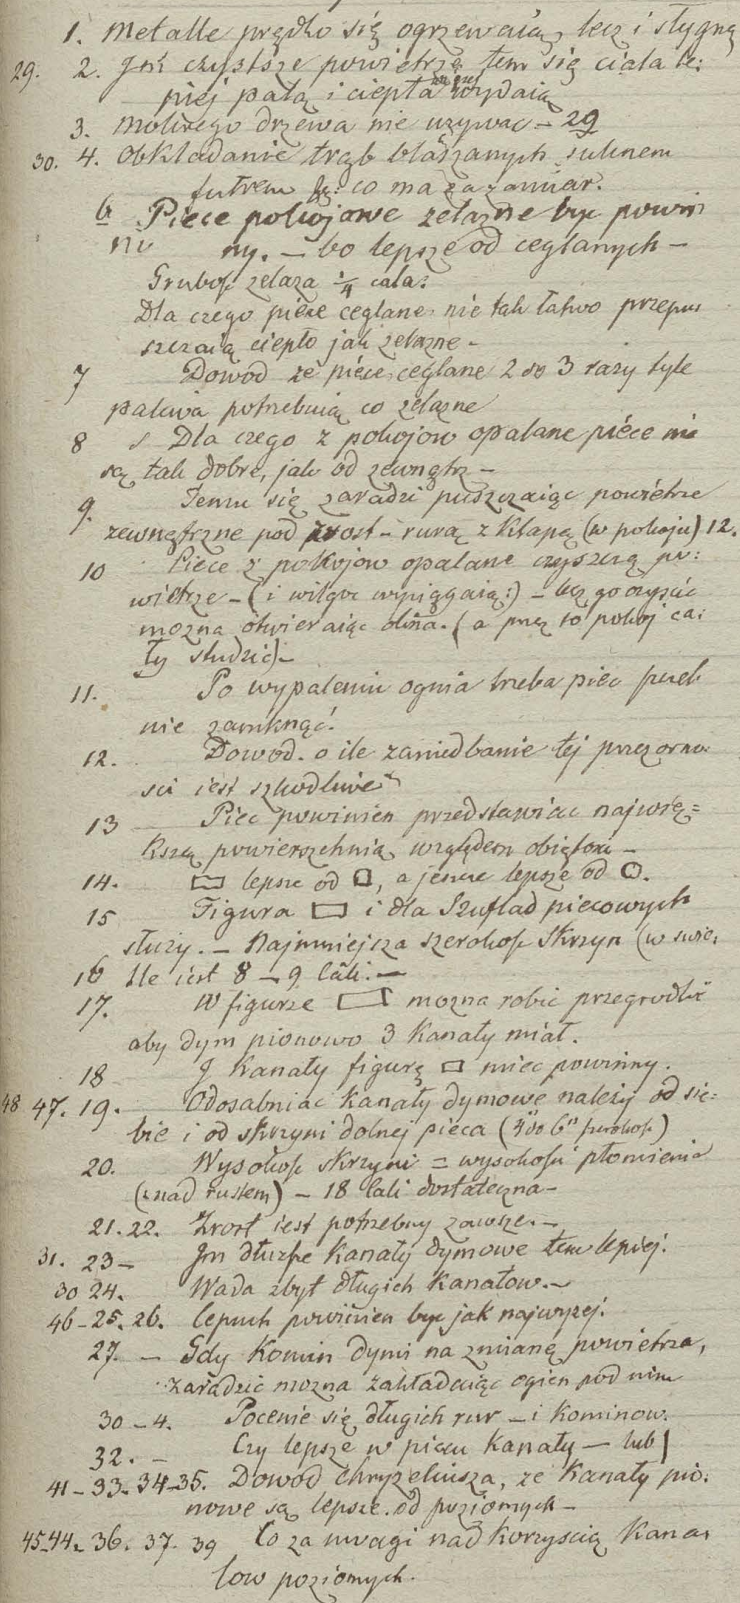 1. Metalle prędko się ogrzewaią, lecz i stygną
29. 2. Jm czystsze powietrze tem się ciała le:
piej palą i ciepła więcej wydaią
3. Mokrego drzewa nie używac – 29
30. 4. Obkładanie trąb blaszanych suknem
futrem co ma za zamiar.
6 Piece pokojowe żelazne byc powin
ny. – bo lepsze od ceglanych –
Grubosc zelaza ¼ cala:
Dla czego piece ceglane nie tak łatwo przepu
szczaią ciepło jak zelazne –
7 Dowod ze piece ceglane 2 do 3 razy tyle
paliwa potrzebuią co zelazne
8 Dla czego z pokojow opalane piéce nie
są tak dobre, jak od zewnątrz –
9. Temu się zaradzi puszczaiąc powietrze
zewnętrzne pod rost – rurą z klapą (w pokoju) 12.
10 Piece z pokojow opalane czyszczą po:
wietrze – (i wilgoc wyciągaią:) – lecz go czyscic
mozna otwieraiąc okna. (a przez to pokoj ca:
ły studzic) –
11. Po wypaleniu ognia trzeba piec
nie zamknąć!
12. Dowod. o ile zaniedbanie tej przezorno
sci iest szkodliwe
13 Piec powinien przedstawiac najwię=
kszą powierzchnią względem obiętosci –
14. ▭ lepsze od ▢, a jeszcze lepsze od ○.
15 Figura ▭ i dla Szuflad piecowych
służy. – Najmniejsza szerokosc Skrzyn (w swie:
16 tle iest 8 – 9 Cali: –
17. W figurze ▭ mozna robic przegrodki
aby dym pionowo 3 Kanały miał.
18 J Kanały figurę ▭ miec powinny.
48 47. 19. Odosabniac Kanały dymowe należy od sie:
bie i od skrzyni dolnej pieca (3" do 6" szerokosc)
20. Wysokosc skrzyni = wysokosci płomienia
(nad rustem) – 18 Cali dostateczna –
21. 22. Zrost iest potrzebny zawsze. –
31. 23 – Jm dłuzsze Kanały dymowe tem lepiej.
30 24. Wada zbyt długich Kanałow. –
46 – 25. 26. Cepuch powinien byc jak najwyzej.
27. – Gdy Komin dymi na zmianę powietrza,
zaradzic mozna zakładaiąc ogien pod nim
30 – 4. Pocenie się długich rur – i Kominow.
32. – Czy lepsze w piecu Kanały – lub |
41 – 33. 34 – 35. Dowod Chryzeliusza, ze Kanały pio:
nowe są lepsze od poziomych –
45. 44. 36. 37. 39 Co za uwagi nad korzyscią Kana:
low poziomych.